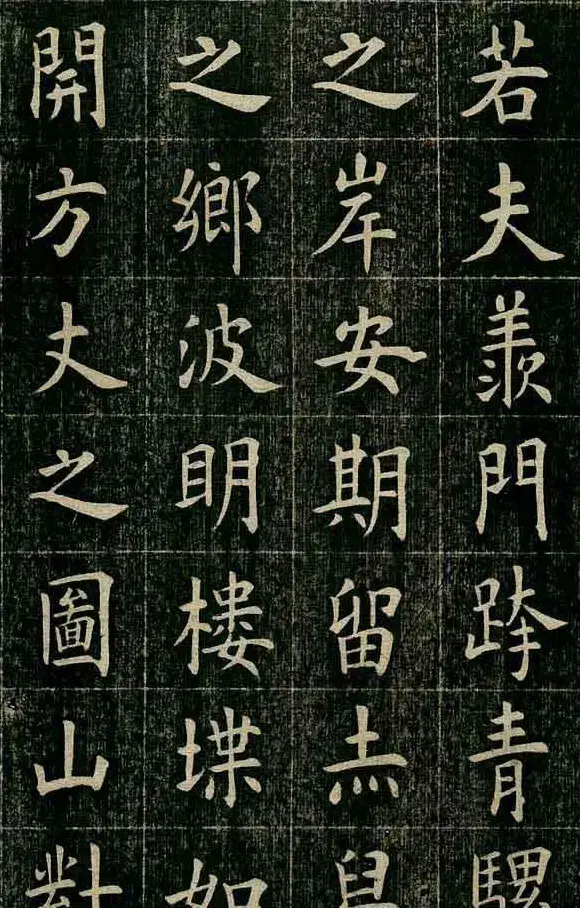 若夫羨門跨青騾
之岸安期留赤舄
之鄉波明樓堞如
開方丈之圖山對